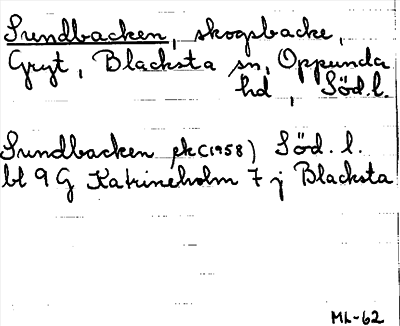 Sundbacken, skogsbacke,
Gryt, Blacksta sn, Oppunda
hd, Söd.l.
Sundbacken ek(1958) Söd. l.
bl 9 G Katrineholm 7 j Blacksta
ML-62